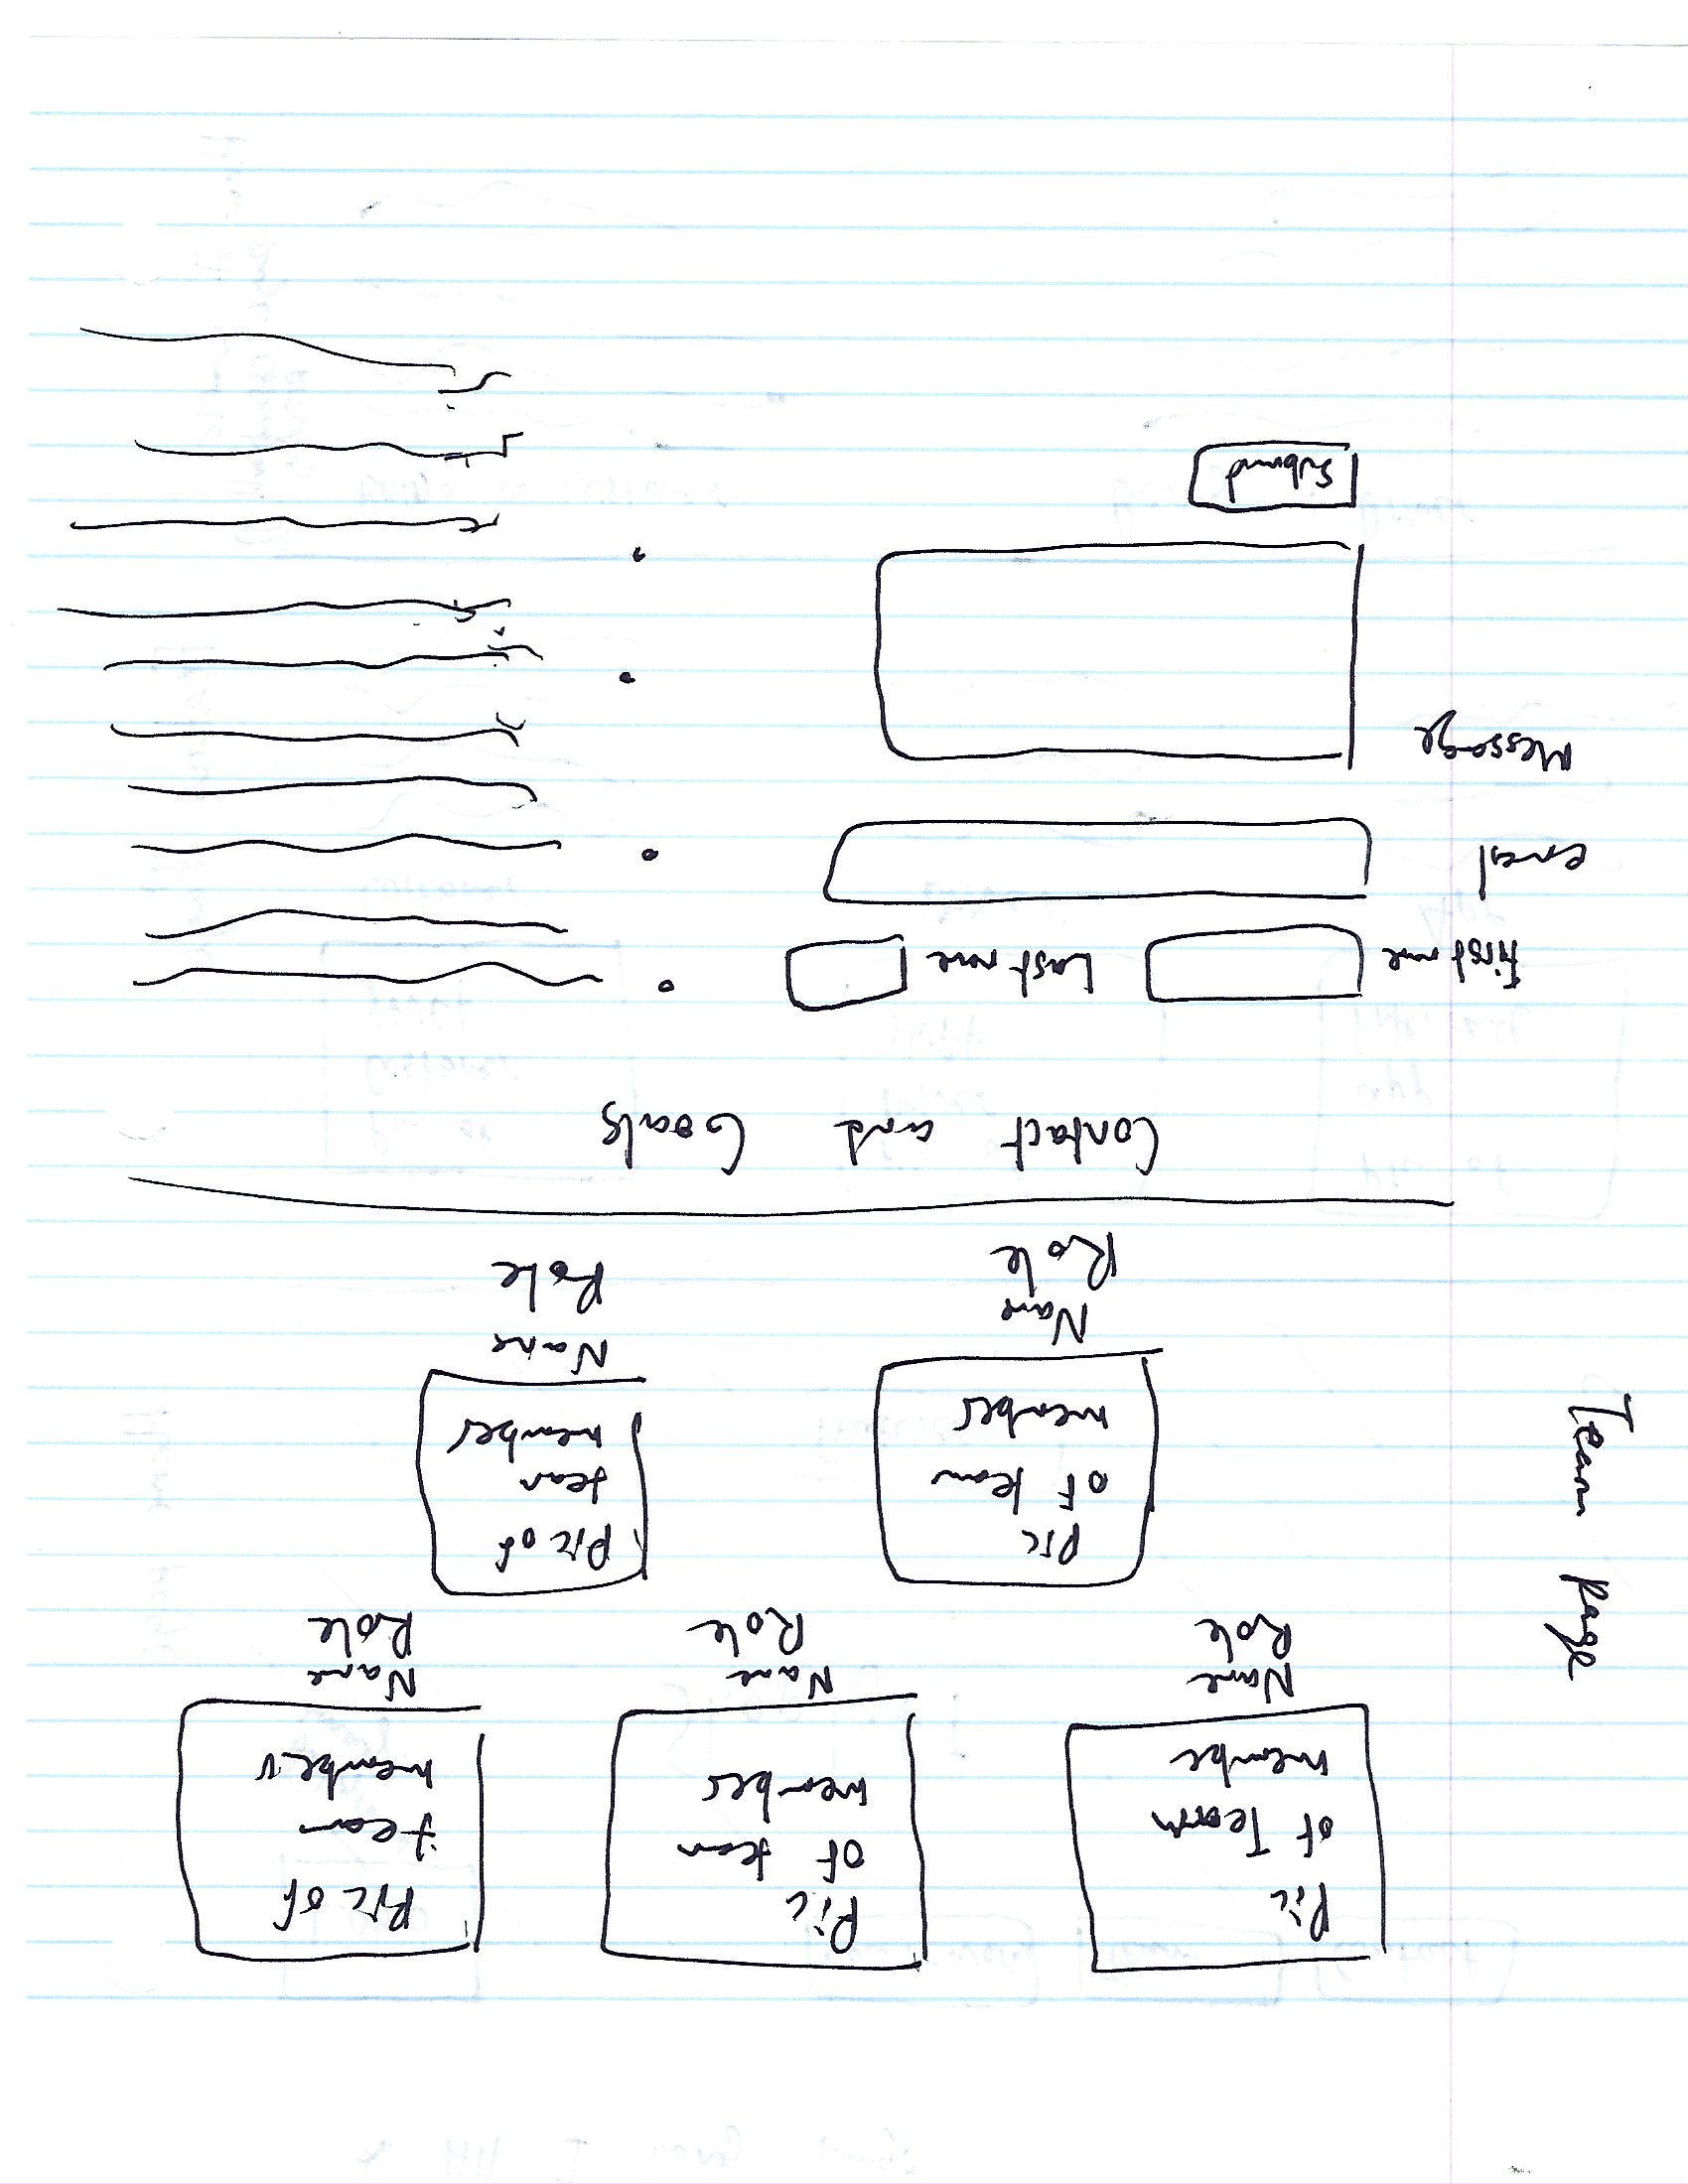 Team Page
Pic
of Team
membe
Name
Role
Pic
of team
member
Name
Role
Pic of
team
member
Name
Role
Pic
of team
member
Name
Role
Pic of
team
member
Name
Role
Contact and Goals
First
Last
email
Message